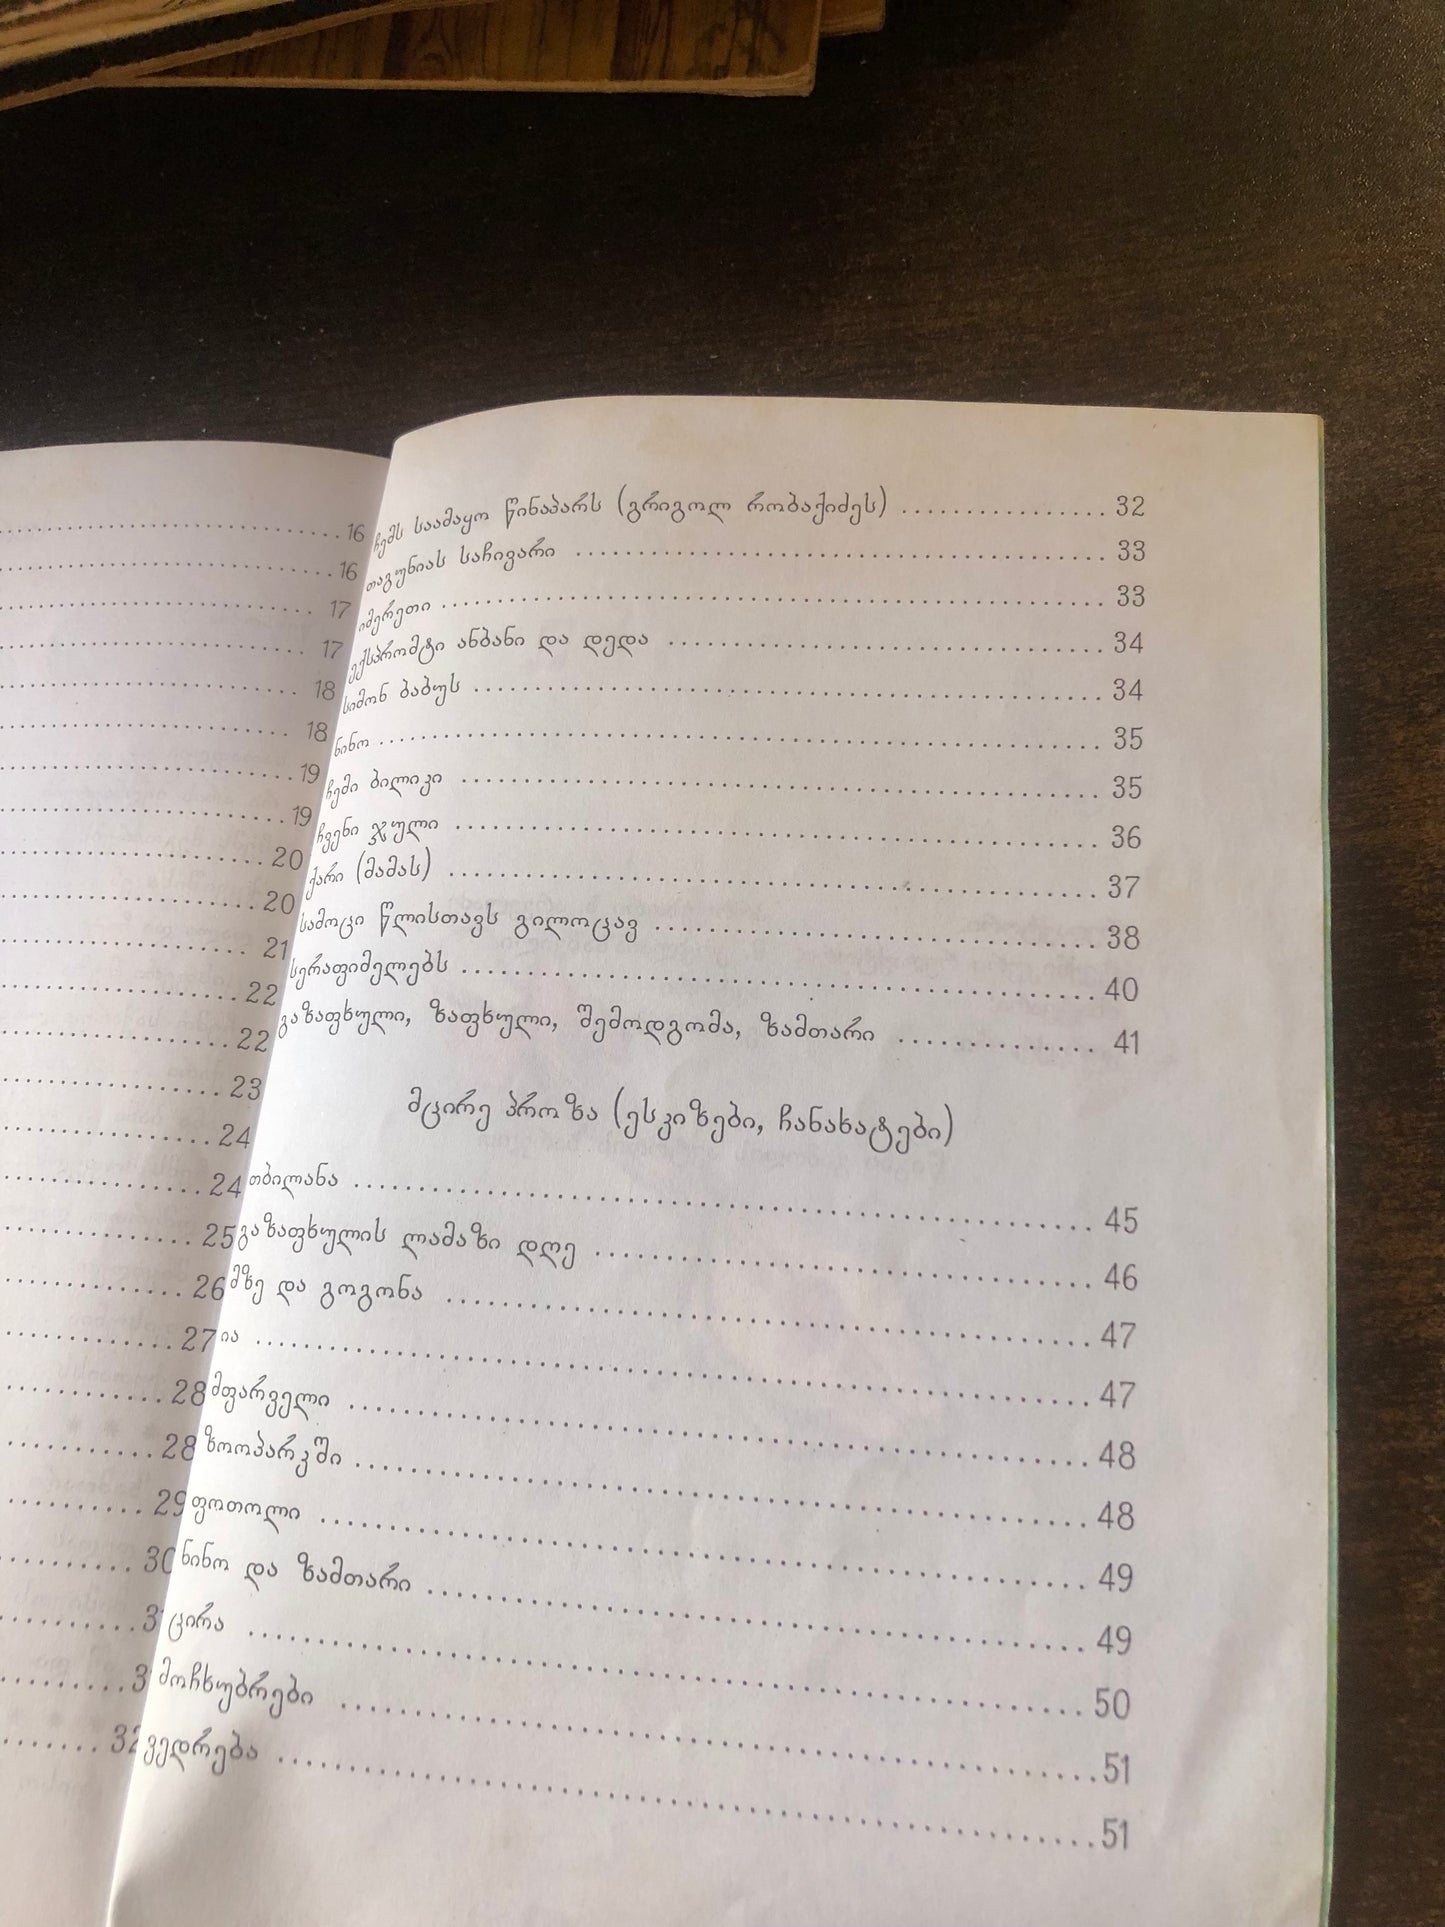 ................ 16
................ 16
................ 17
................ 17
................ 18
................ 18
................ 19
................ 19
................ 20
................ 20
................ 21
................ 22
................ 22
................ 23
................ 24
................ 24
................ 25
................ 26
................ 27
................ 28
................ 28
................ 29
................ 30
................ 3
................ 3
................ 32
ჩემს საამაყო წინაპარს (გრიგოლ რობაქიძეს) ................ 32
თაგუნიას საჩივარი ................ 33
იმერეთი ................ 33
ექსპრომტი ანბანი და დედა ................ 34
სიმონ ბაბუს ................ 34
ნინო ................ 35
ჩემი ბილიკი ................ 35
ჩვენი ჯული ................ 36
ქარი (მამას) ................ 37
სამოცი წლისთავს გილოცავ ................ 38
სერაფიმელებს ................ 40
გაზაფხული, ზაფხული, შემოდგომა, ზამთარი ................ 41
მცირე პროზა (ესკიზები, ჩანახატები)
თბილანა ................ 45
გაზაფხულის ლამაზი დღე ................ 46
მზე და გოგონა ................ 47
ია ................ 47
მფარველი ................ 48
ზოოპარკში ................ 48
ფოთოლი ................ 49
ნინო და ზამთარი ................ 49
ცირა ................ 50
მოჩხუბრები ................ 51
ვედრება ................ 51